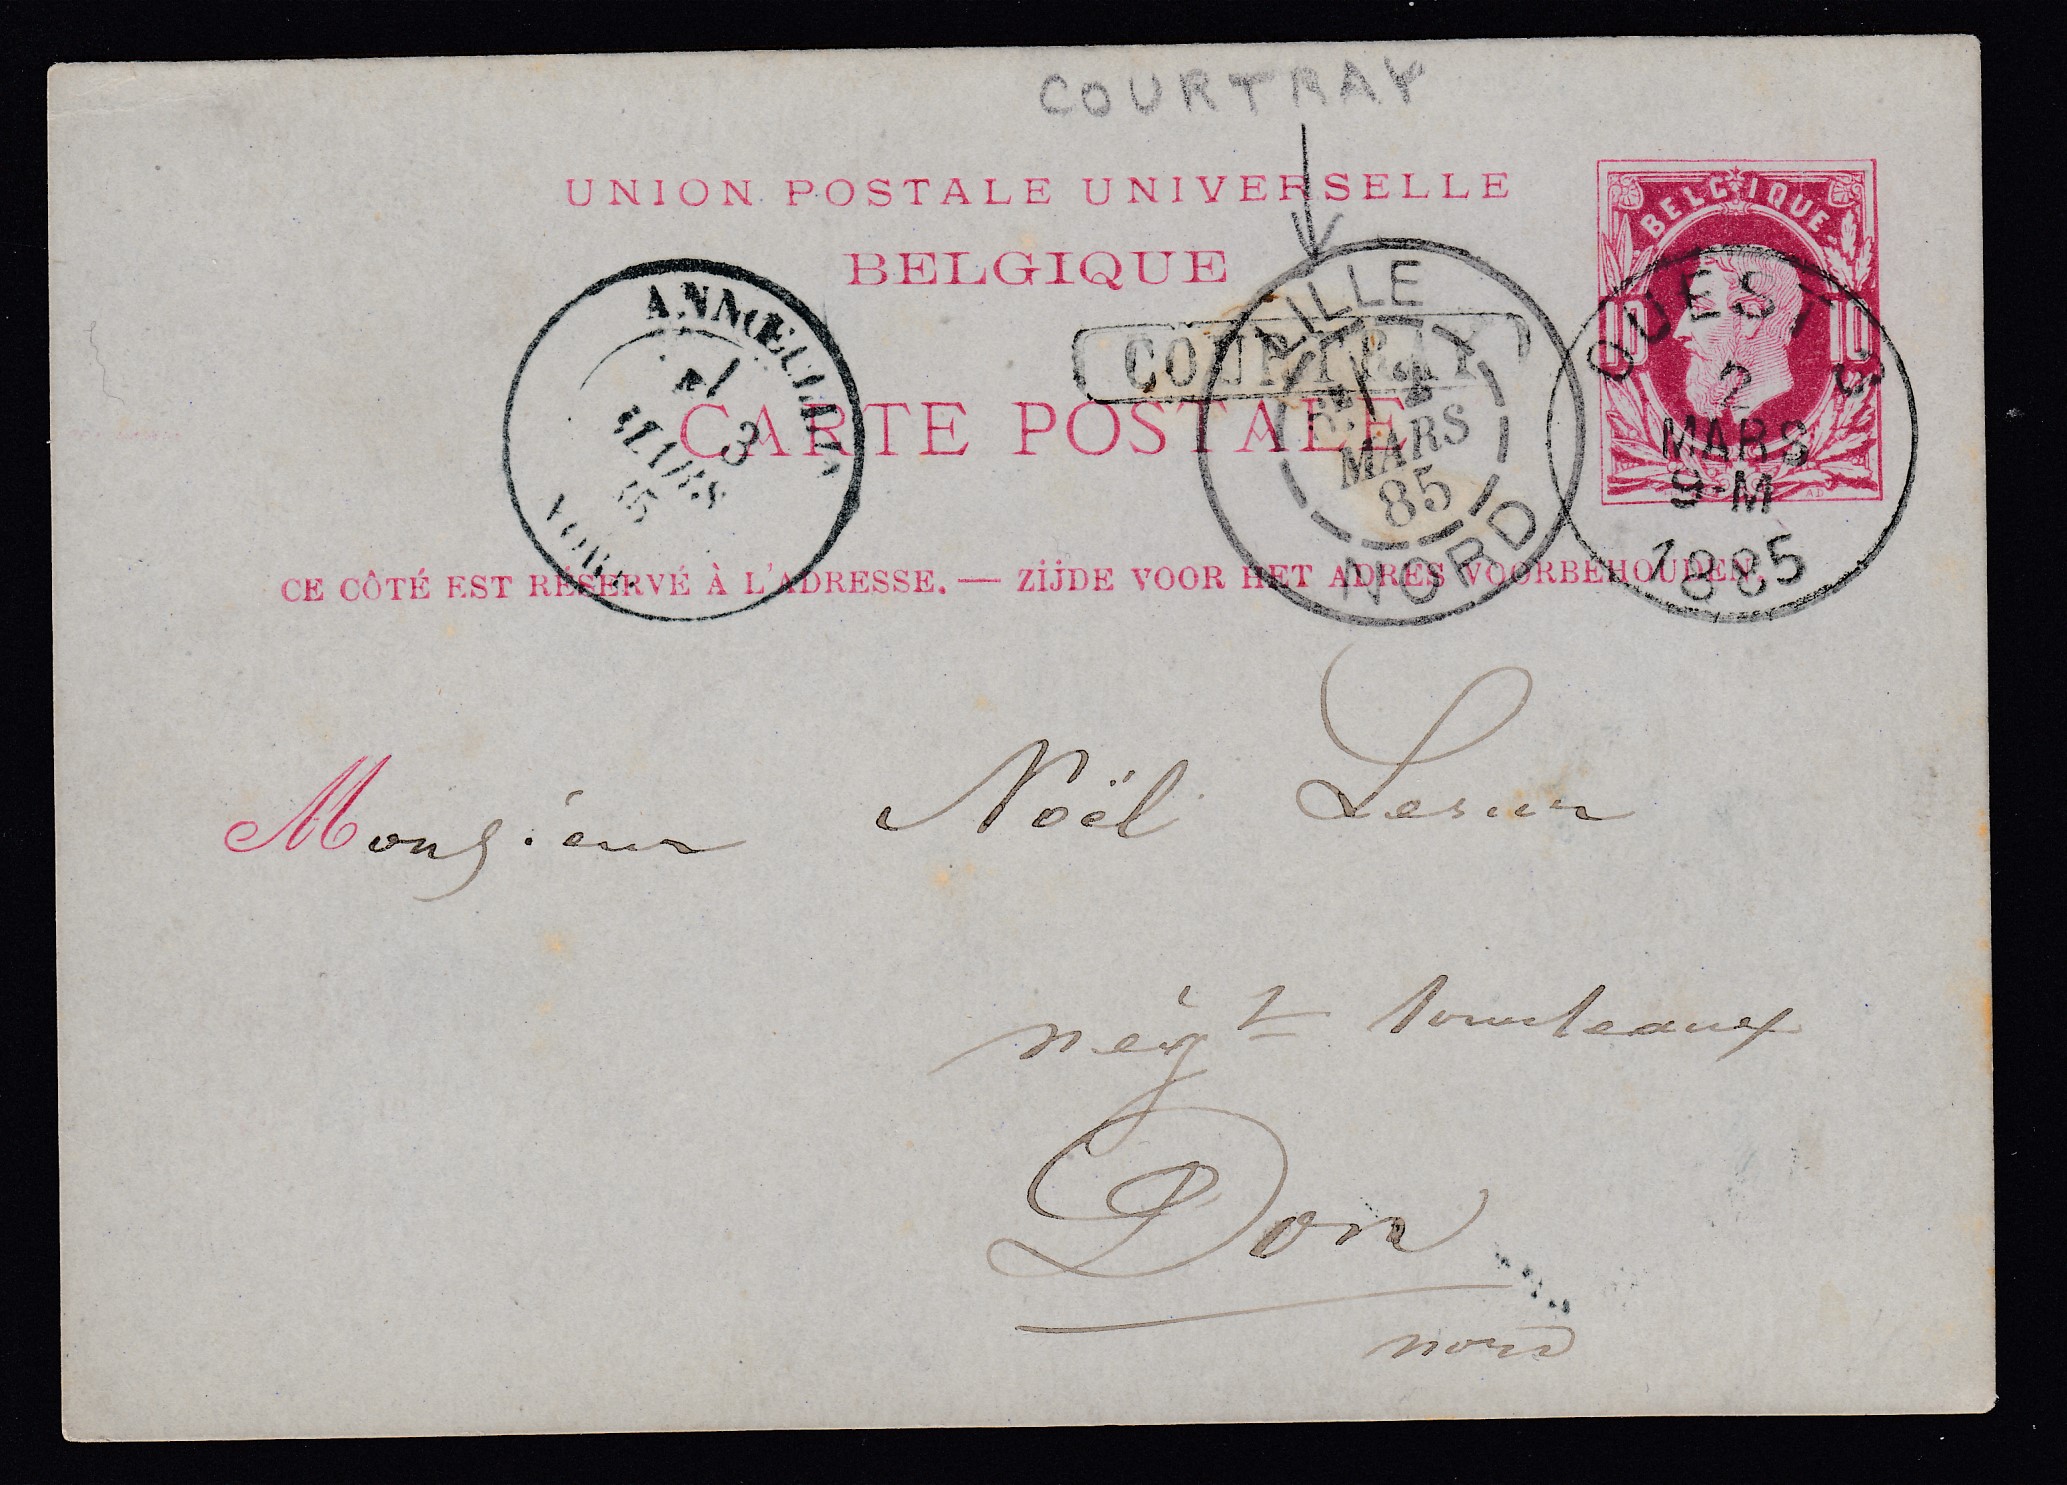 COURTRAY
UNION POSTALE UNIVERSELLE
BELGIQUE
CARTE POSTALE
CE CÔTÉ EST RÉSERVÉ À L'ADRESSE. — ZIJDE VOOR HET ADRES VOORBEHOUDEN.
BELGIQUE
10 10
OUEST 3
2
MARS
9-M
1885
COURTRAY
LILLE
2
MARS
85
NORD
ANNŒULLIN
3
MARS
85
NORD
Monsieur Noël Lesur
négt tourteaux
Don
nord